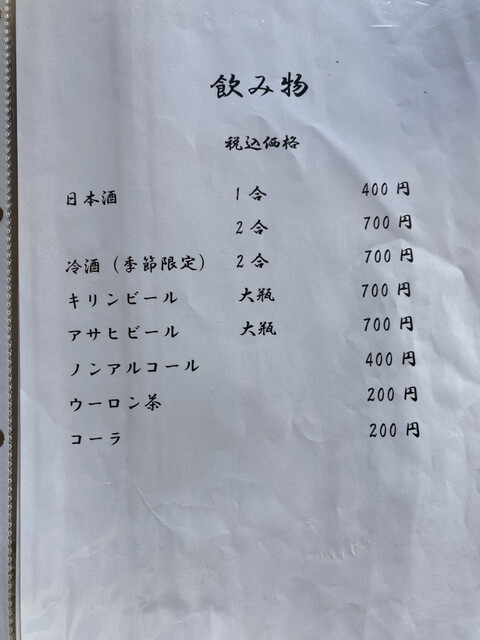 飲み物
税込価格
日本酒 1合 400円
2合 700円
冷酒（季節限定） 2合 700円
キリンビール 大瓶 700円
アサヒビール 大瓶 700円
ノンアルコール 400円
ウーロン茶 200円
コーラ 200円